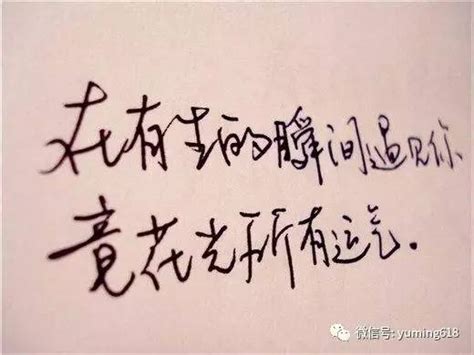 在有生的瞬间遇见你
竟花光所有运气.
微信号: yuming618